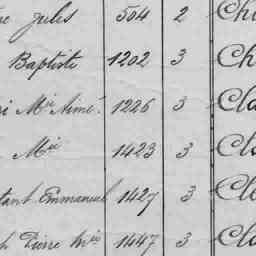 re Jules 504 2 Ch
Baptiste 1202 3 Ch
ri Mie Aimé. 1226 3 Cla
Mie 1423 3 Cla
tant Emmanuel 1427 3 Cle
h Pierre Mie 1447 3 Clo